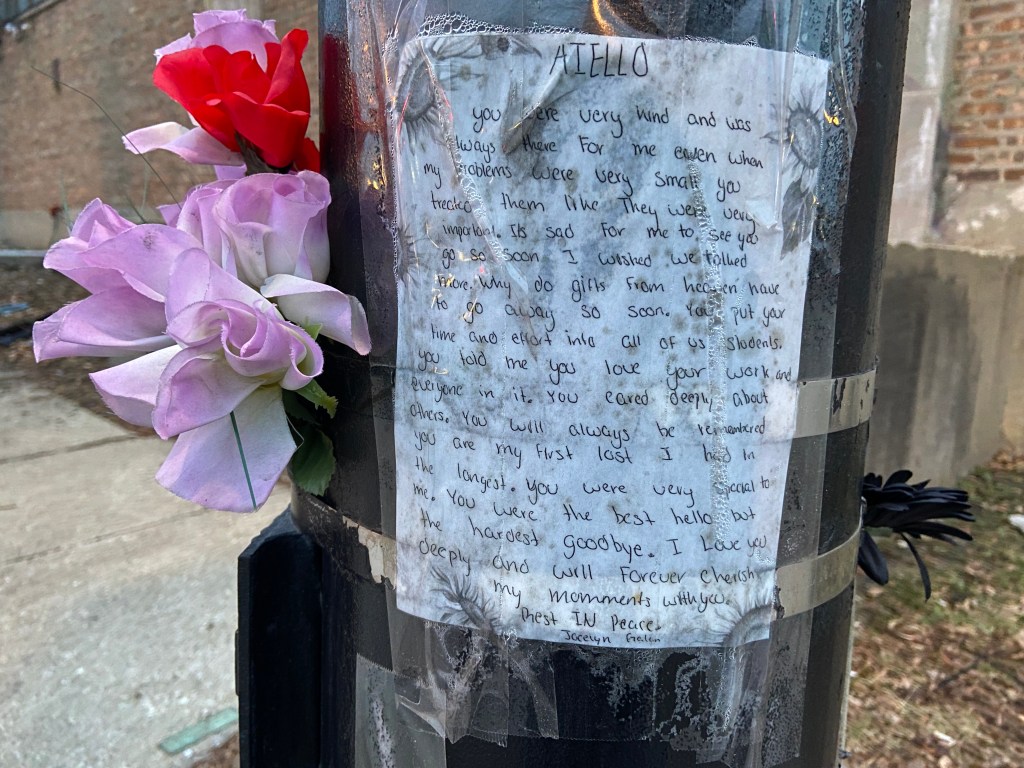 AIELLO
you were very kind and was
always there For me eaven when
my problems were very small you
treated them like They were very
important. Its sad For me to see you
go so soon I wished we talked
more. Why do girls From heaven have
to go away so soon. You put your
time and effort into all of us students.
you told me you love your work and
everyone in it. You cared deeply about
others. You will always be remembered
you are my First lost I had in
the longest. You were very special to
me. You were the best hello but
the hardest goodbye. I Love you
deeply and will Forever cherish
my momments with you.
Rest IN Peace.
Jocelyn